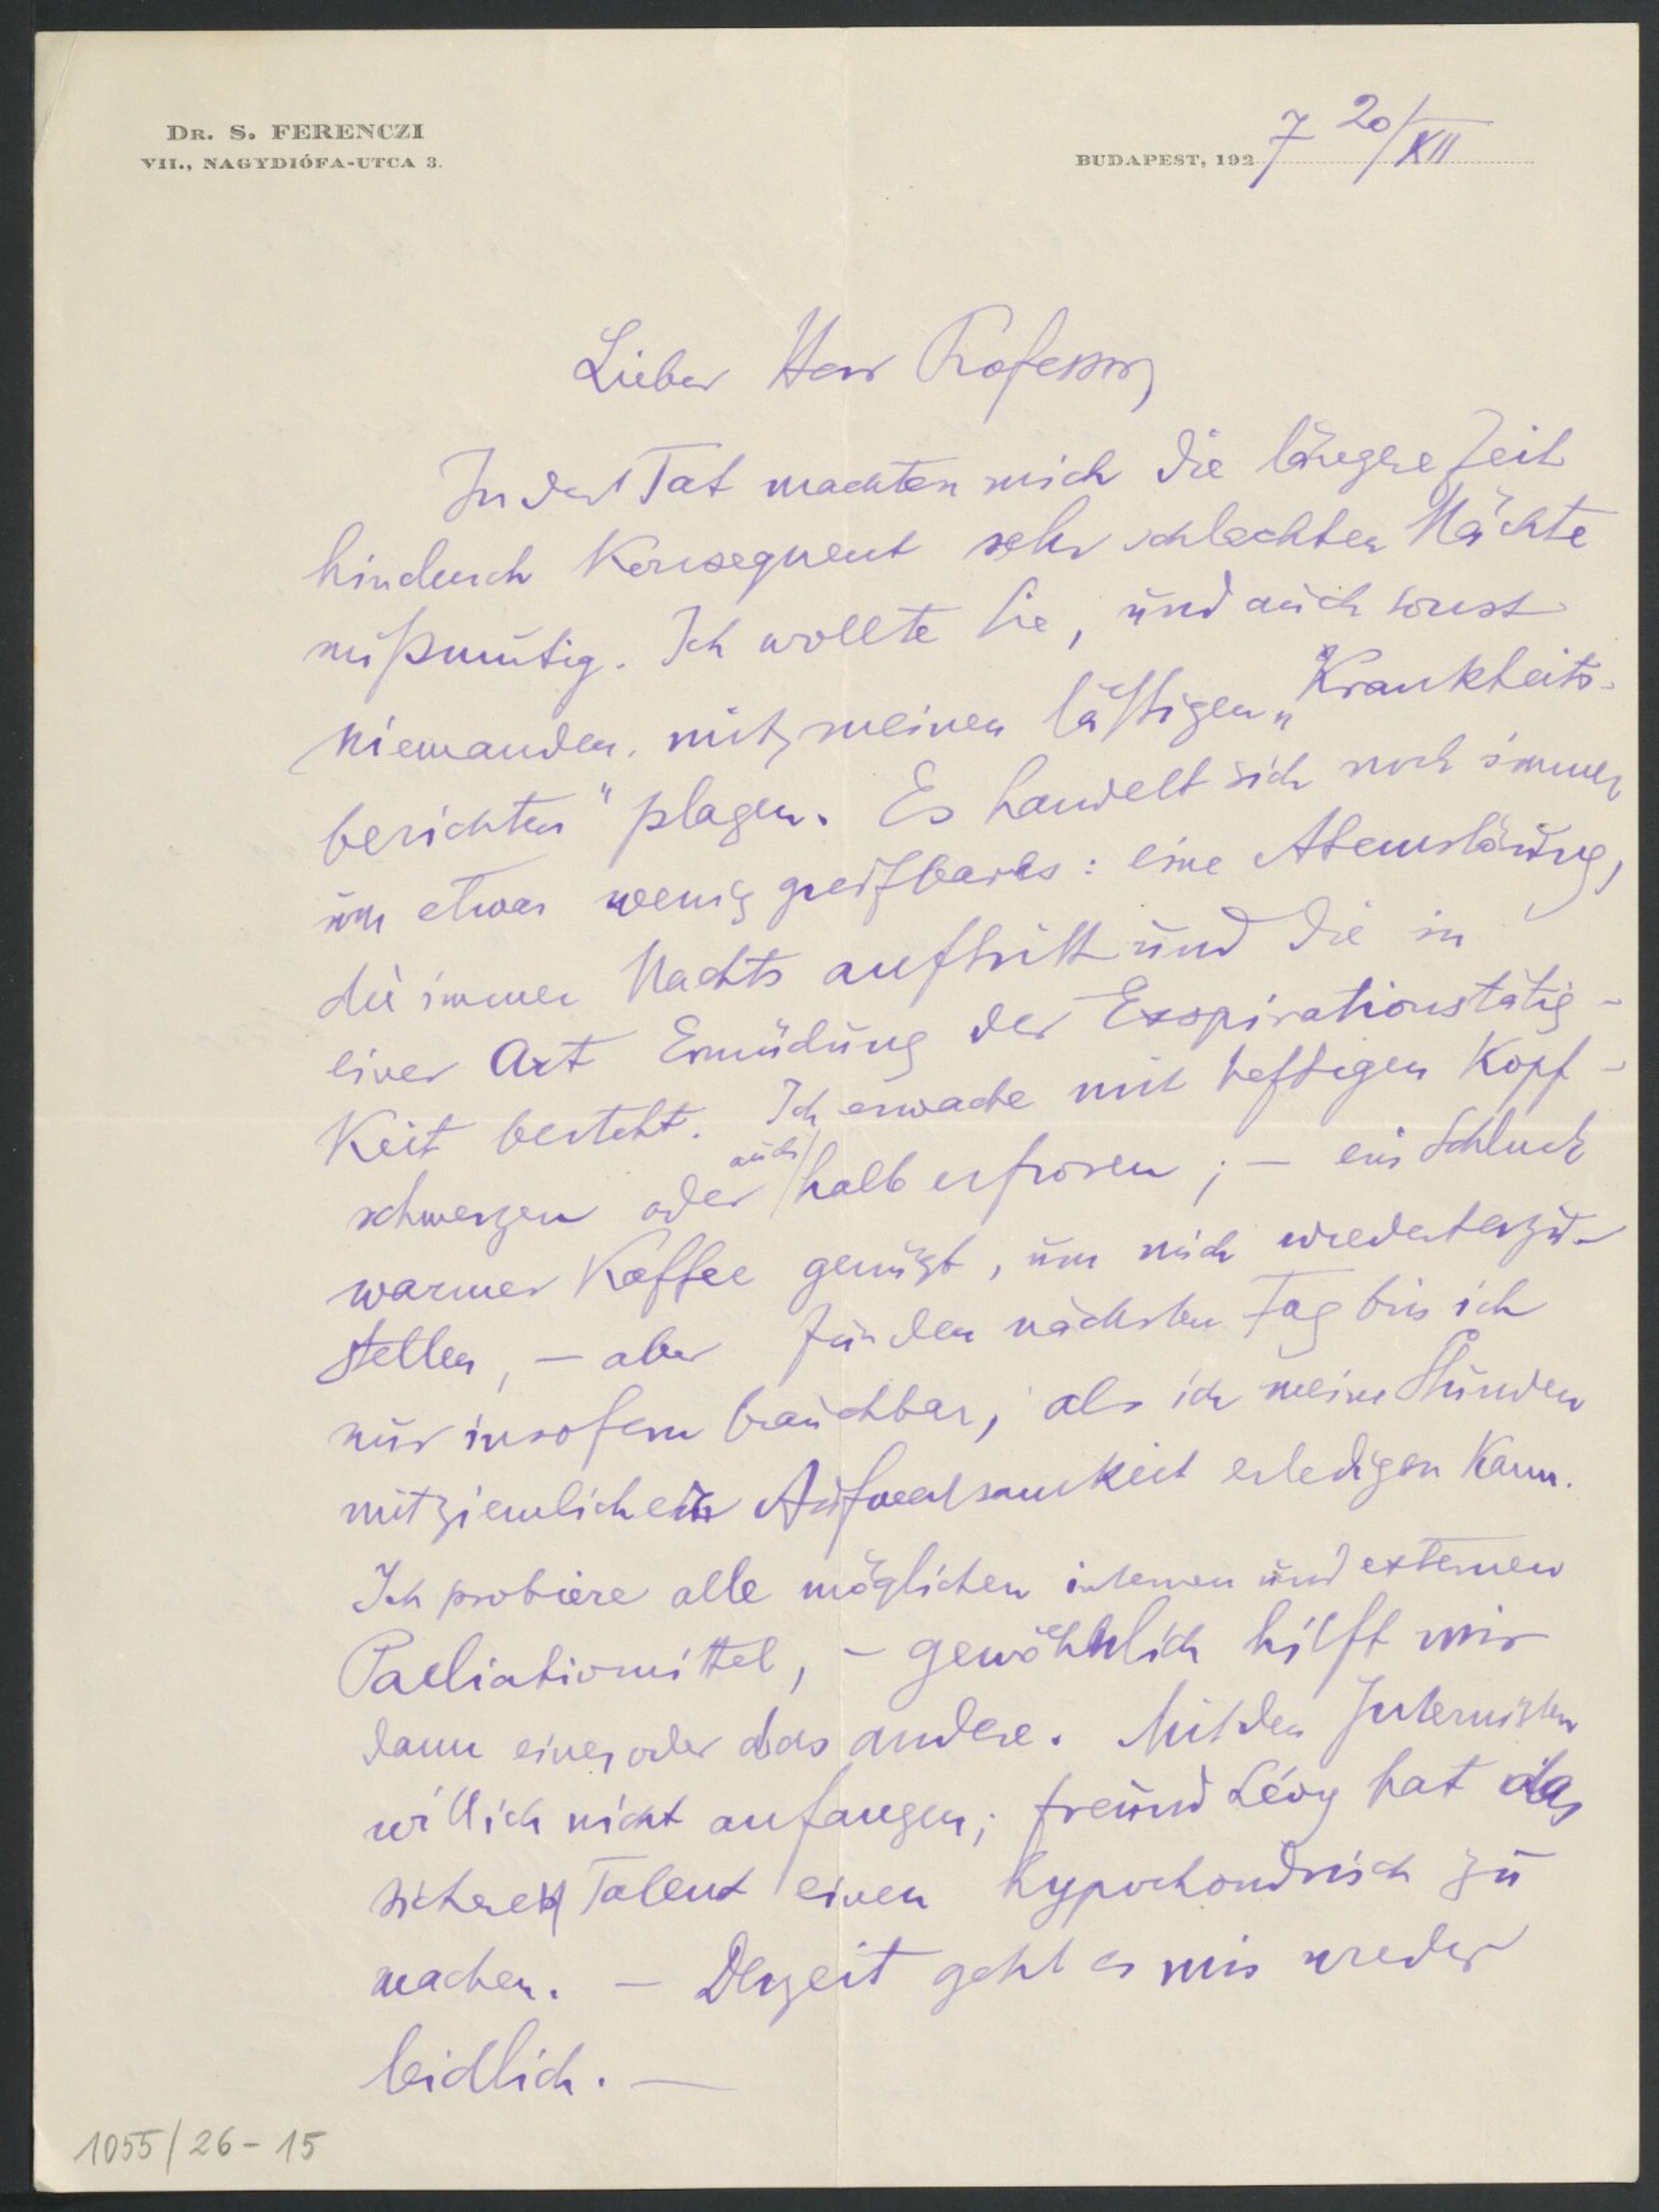 DR. S. FERENCZI
VII., NAGYDIÓFA-UTCA 3.
BUDAPEST, 1927 20/XII
Lieber Herr Professor,
In der Tat machten mich die längere Zeit
hindurch Konsequent sehr schlechten Nächte
mißmütig. Ich wollte Sie, und auch sonst
niemanden, mit meinen lästigen „Krankheits-
berichten" plagen. Es handelt sich noch immer
um etwas wenig greifbares: eine Atemstörung,
die immer Nachts auftritt und die in
einer Art Ermüdung der Exspirationstätig-
Keit besteht. Ich erwache mit heftigen Kopf-
schmerzen oder auch halb erfroren; – ein Schluck
warmer Kaffee genügt, um mich wiederherzu-
stellen, – aber für den nächsten Tag bin ich
nur insofern brauchbar, als ich meine Stunden
mit ziemlicher Aufmerksamkeit erledigen Kann.
Ich probiere alle möglichen internen und externen
Palliativmittel, – gewöhnlich hilft mir
dann eines oder das andere. Mit den Internisten
will ich nicht anfangen; Freund Lévy hat das
sichere Talent einen hypochondrisch zu
machen. – Derzeit geht es mir wieder
leidlich. –
1055/26-15